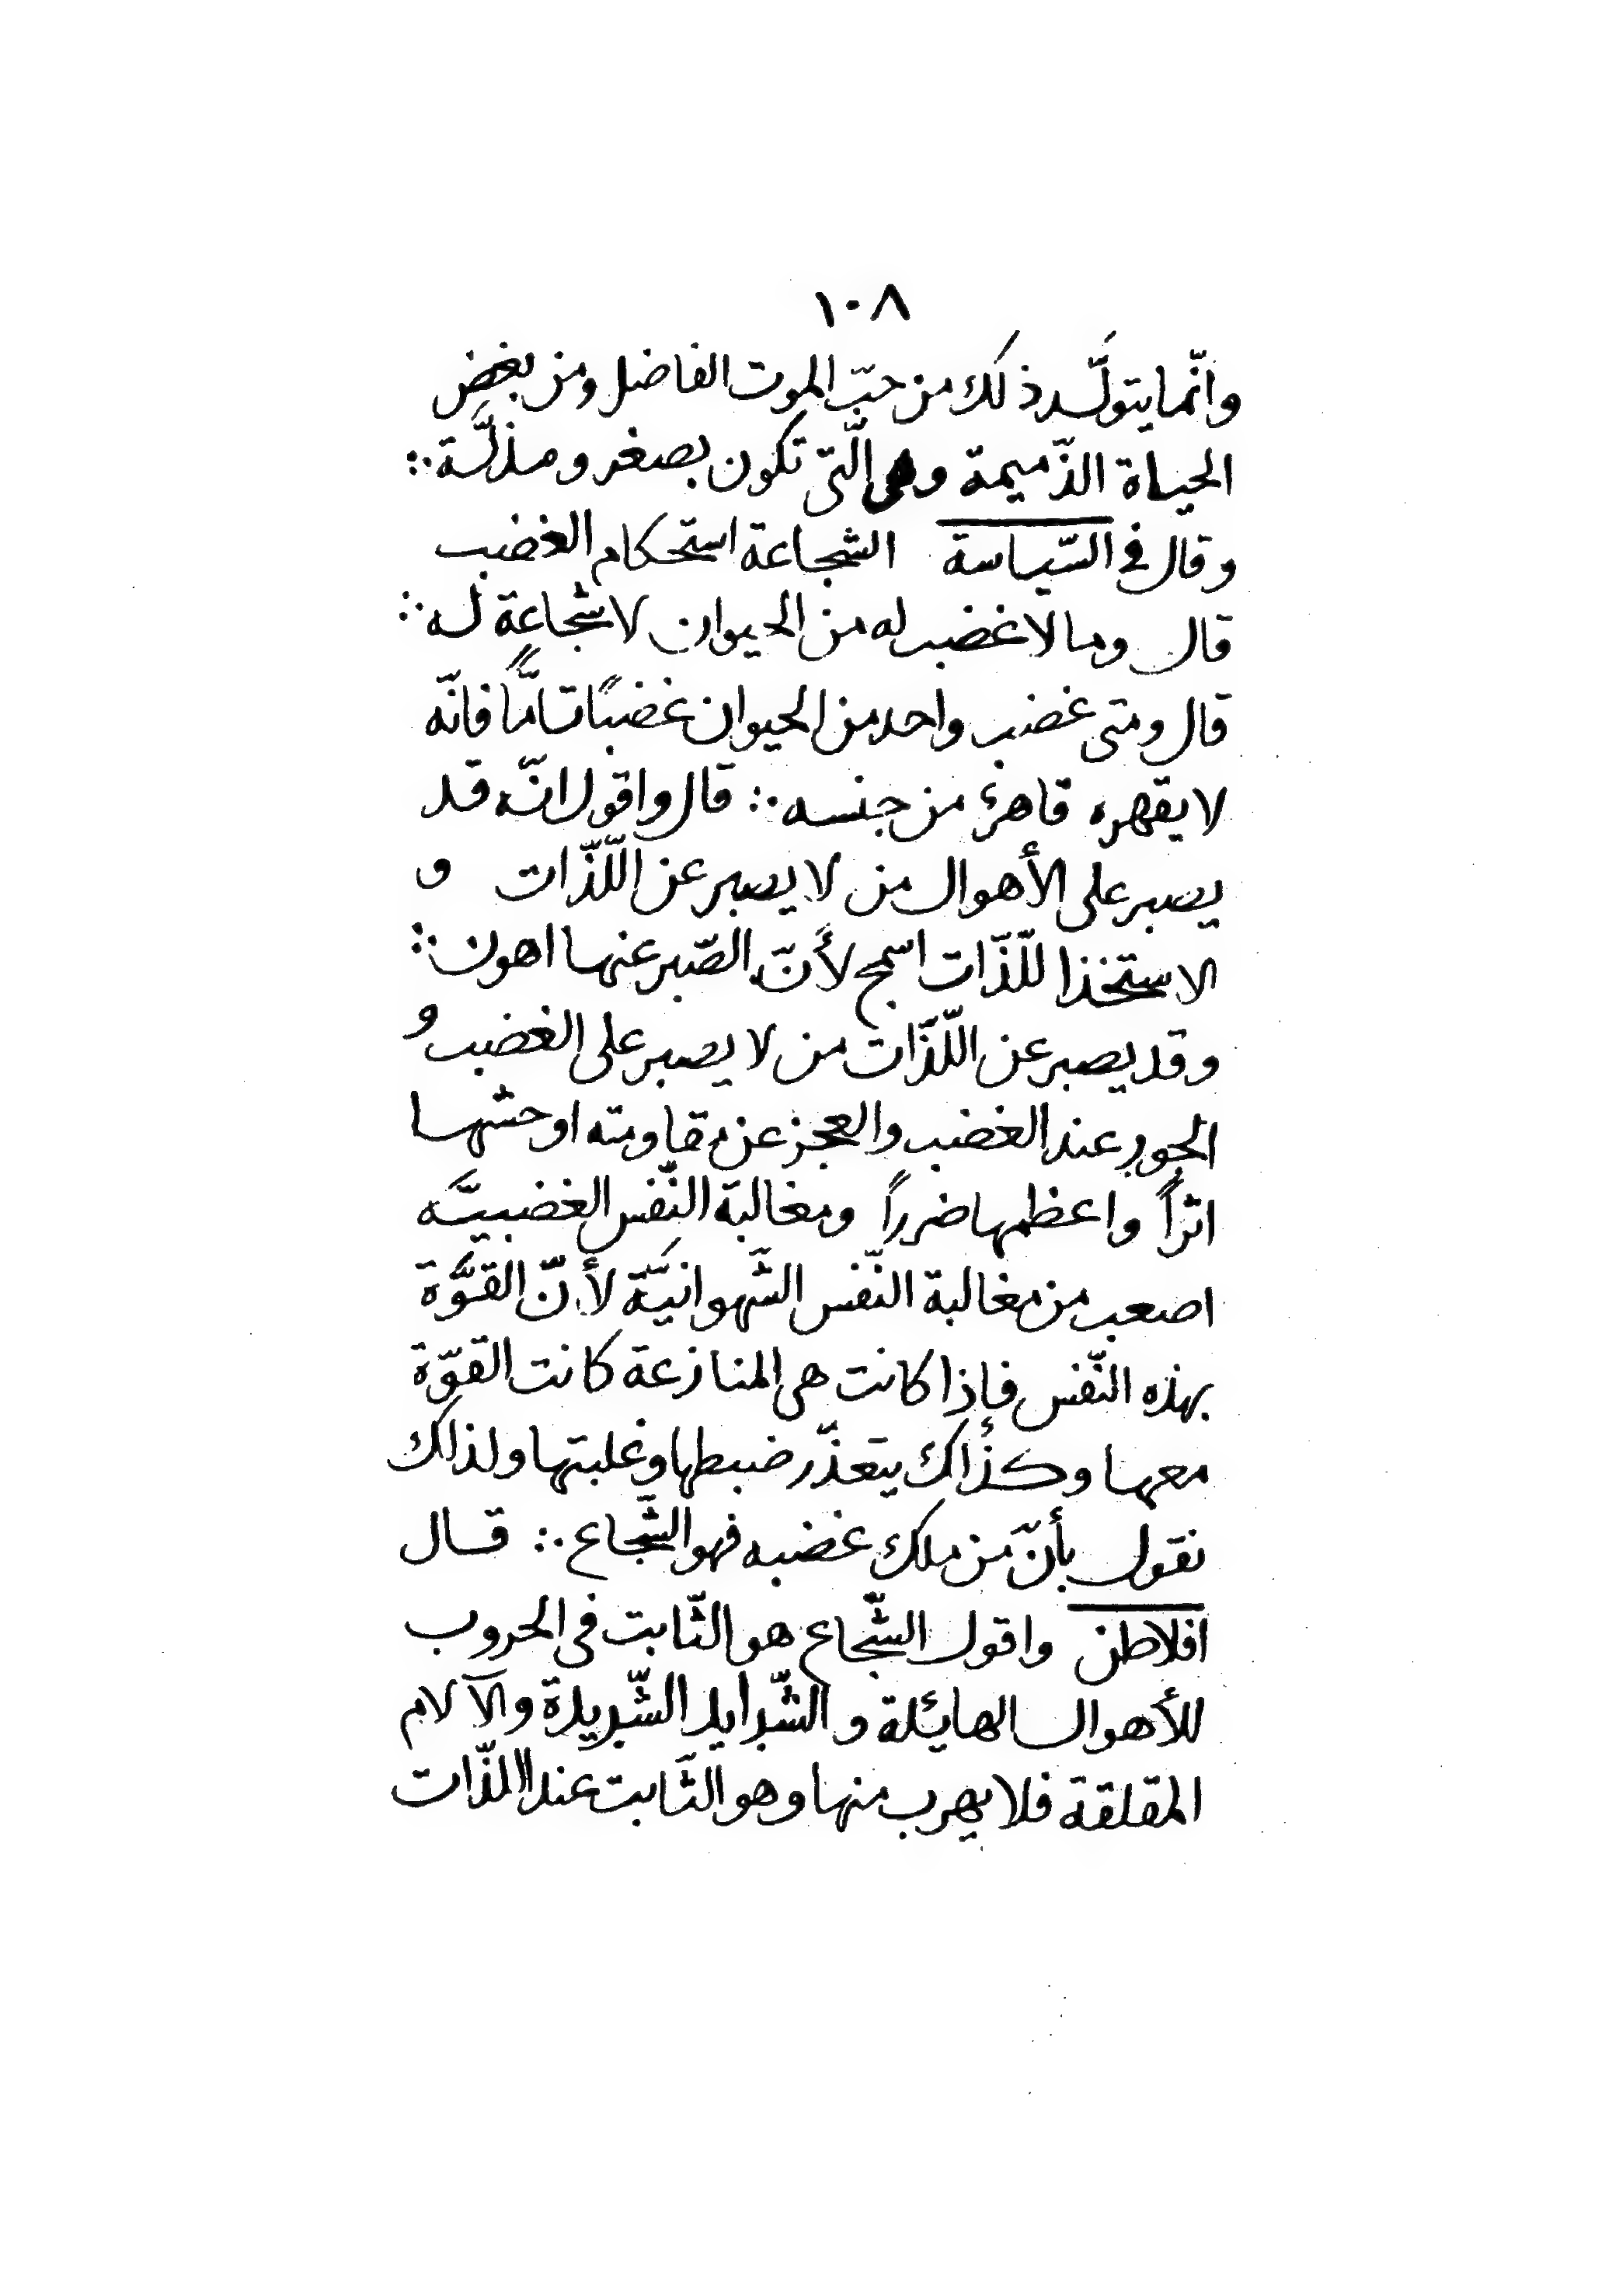 ١٠٨
وانّما يتولّد ذلك من حبّ الموت الفاضل ومن بغض
الحياة الذّميمة وهى الّتى تكون بصغر ومذلّة ∴
وقال فى السّياسة الشجاعة استحكام الغضب
قال وما لا غضب له من الحيوان لا شجاعة له ∴
قال ومتى غضب واحد من الحيوان غضبًا تامًّا فانّه
لا يقهره قاهرٌ من جنسه ∴ قال واقول انّه قد
يصبر على الأهوال من لا يصبر عن اللّذّات و
الاستخذا للّذّات اسمج لأنّ الصّبر عنها اهون ∴
وقد يصبر عن اللّذّات من لا يصبر على الغضب و
الجور عند الغضب والعجز عن مقاومته اوحشها
اثراً واعظمها ضرراً ومغالبة النّفس الغضبيّه
اصعب من مغالبة النّفس الشّهوانيّة لأنّ القوّة
بهذه النّفس فاذا كانت هى المنازعة كانت القوّة
معها وكذلك يتعذّر ضبطها وغلبتها ولذلك
نقول بأنّ من ملك غضبه فهو الشّجاع ∴ قال
افلاطن واقول الشّجاع هو الثّابت فى الحروب
للأهوال الهايئلة و الشّدايد الشّديدة والآلام
المقلقة فلا يهرب منها وهو الثّابت عند اللذّات